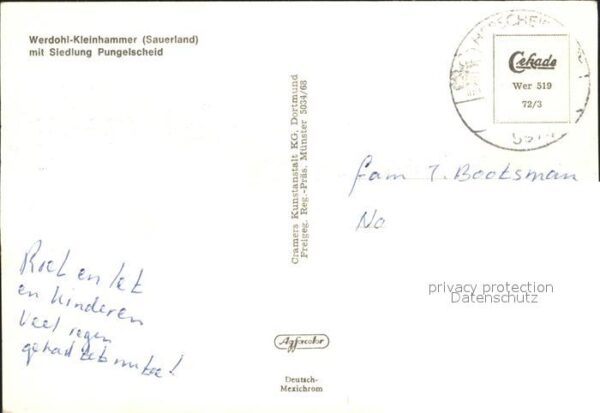 Werdohl-Kleinhammer (Sauerland)
mit Siedlung Pungelscheid
Cekade
Wer 519
72/3
Cramers Kunstanstalt KG, Dortmund
Freigeg. Reg.-Präs. Münster 5034/68
fam T. Bootsman
No
privacy protection
Datenschutz
Roel en
en kinderen
Veel regen
gehad
Agfacolor
Deutsch-
Mexichrom